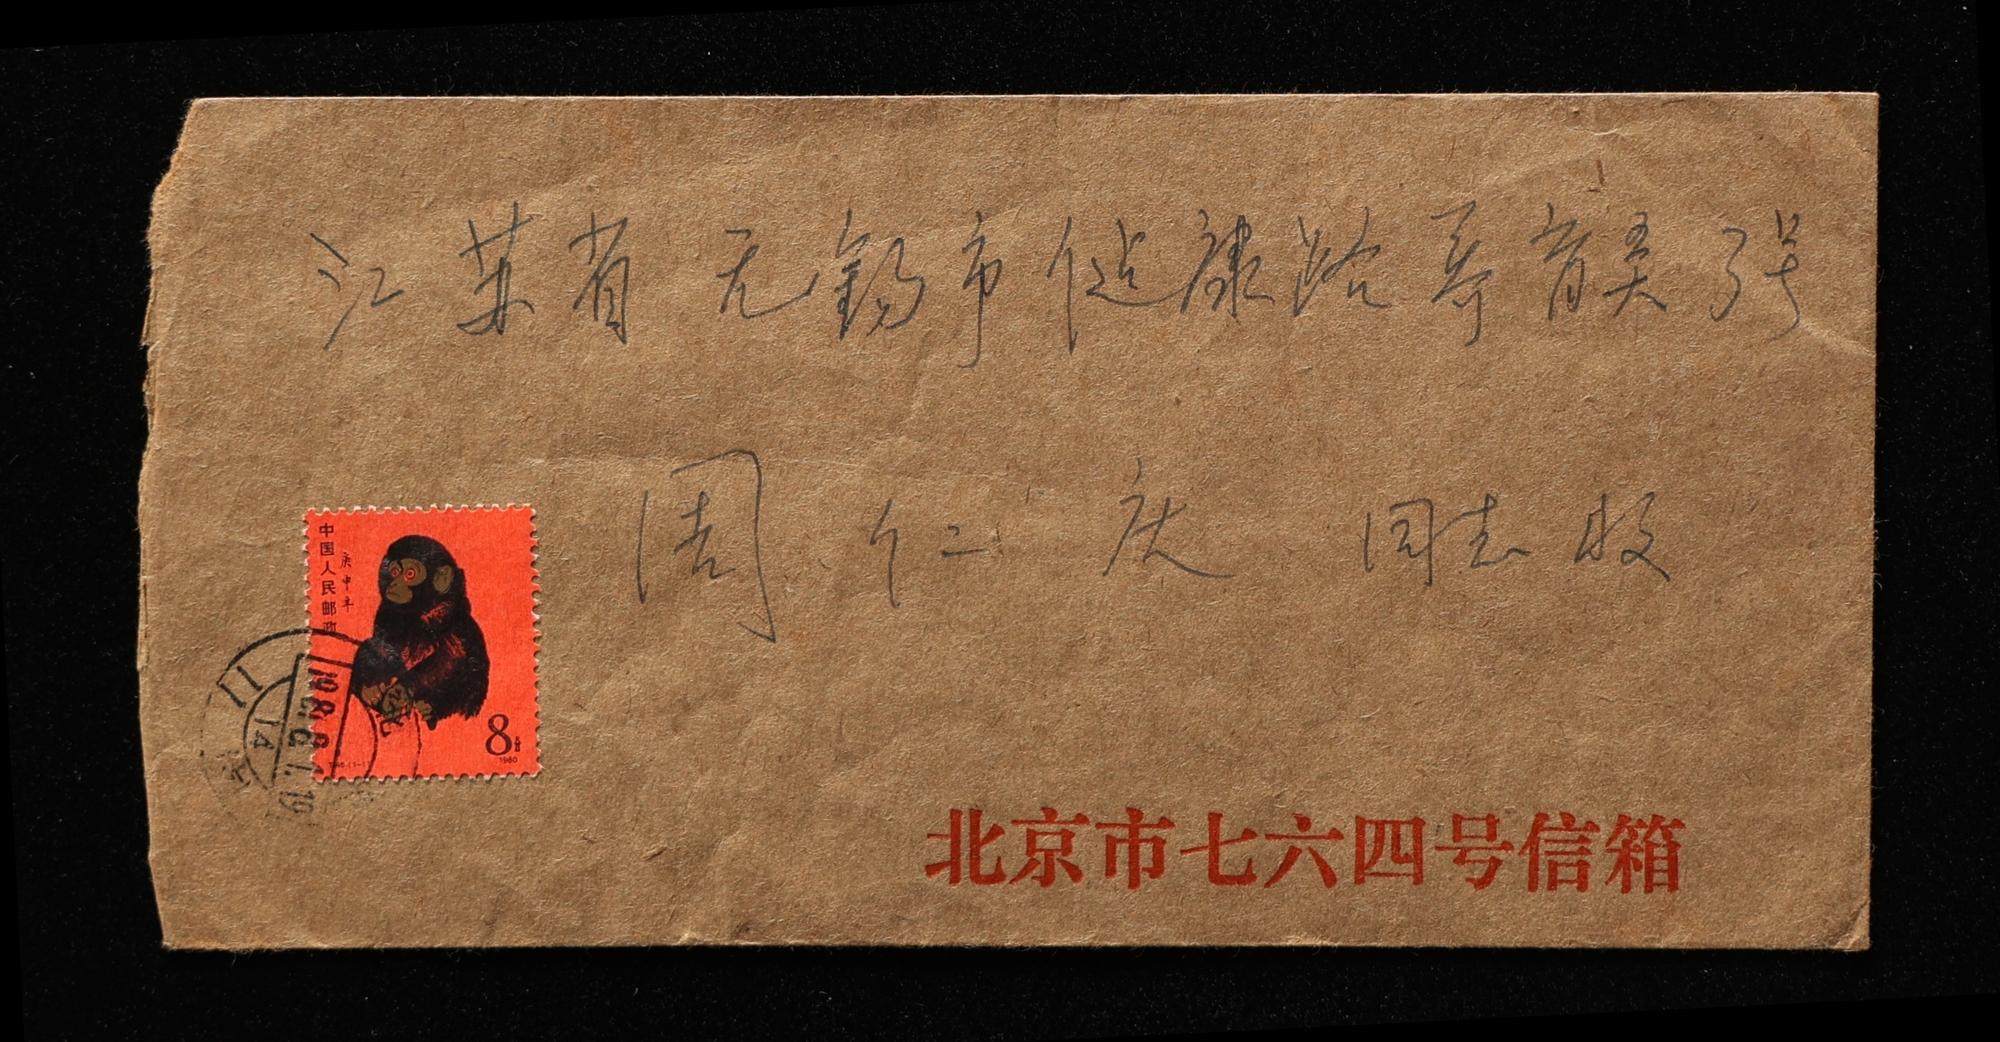 江苏省无锡市健康路寄育美弓号
周仁庆 同志收
中国人民邮政
庚申年
8分
1980
T.46.(1-1)
11
14
北京市七六四号信箱